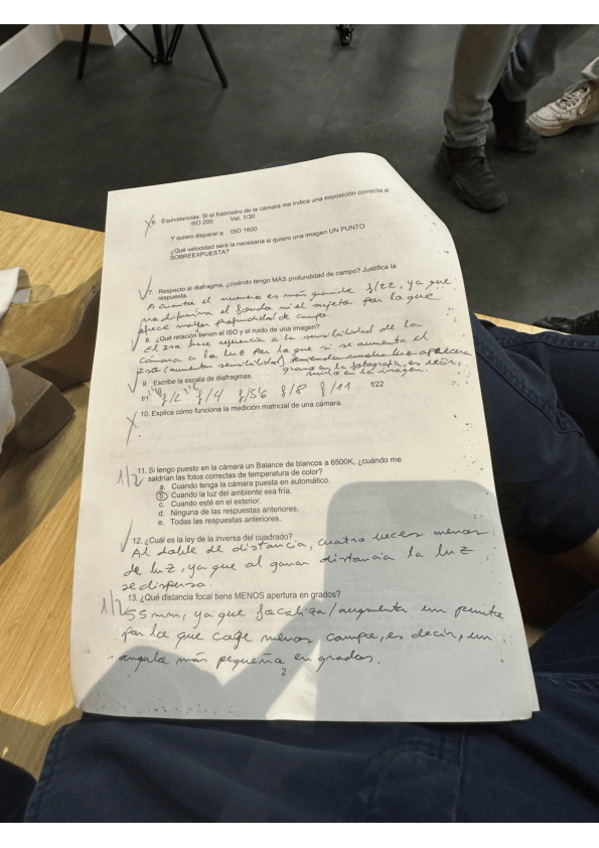 6. Equivalencias: Si el fotómetro de la cámara me indica una exposición correcta a:
ISO 200 Vel. 1/30
Y quiero disparar a ISO 1600
¿Qué velocidad será la necesaria si quiero una imagen UN PUNTO
SOBREEXPUESTA?
7. Respecto al diafragma, ¿cuándo tengo MÁS profundidad de campo? Justifica la
respuesta.
A cuanto el numero es más grande f/22, ya que
no difumina el fondo ni el sujeto por lo que
ofrece mayor profundidad de campo
8. ¿Qué relación tienen el ISO y el ruido de una imagen?
El Iso hace referencia a la sensibilidad de la
cámara a la luz por lo que si se aumenta el
Iso (aumenta sensibilidad) mucha luz aparecera
grano en la fotografía, es decir,
ruido en la imagen.
9. Escribe la escala de diafragmas
f/1 f/2 f/4 f/5'6 f/8 f/11 f/22
10. Explica cómo funciona la medición matricial de una cámara.
1/2 11. Si tengo puesto en la cámara un Balance de blancos a 6500K, ¿cuándo me
saldrían las fotos correctas de temperatura de color?
a. Cuando tenga la cámara puesta en automático.
b. Cuando la luz del ambiente sea fría.
c. Cuando esté en el exterior.
d. Ninguna de las respuestas anteriores.
e. Todas las respuestas anteriores.
12. ¿Cuál es la ley de la inversa del cuadrado?
Al doble de distancia, cuatro veces menos
de luz, ya que al ganar distancia la luz
se dispersa.
13. ¿Qué distancia focal tiene MENOS apertura en grados?
1/2 55 mm, ya que focaliza/augmenta un punto
por lo que coge menos campo, es decir, un
angulo más pequeño en grados.
2